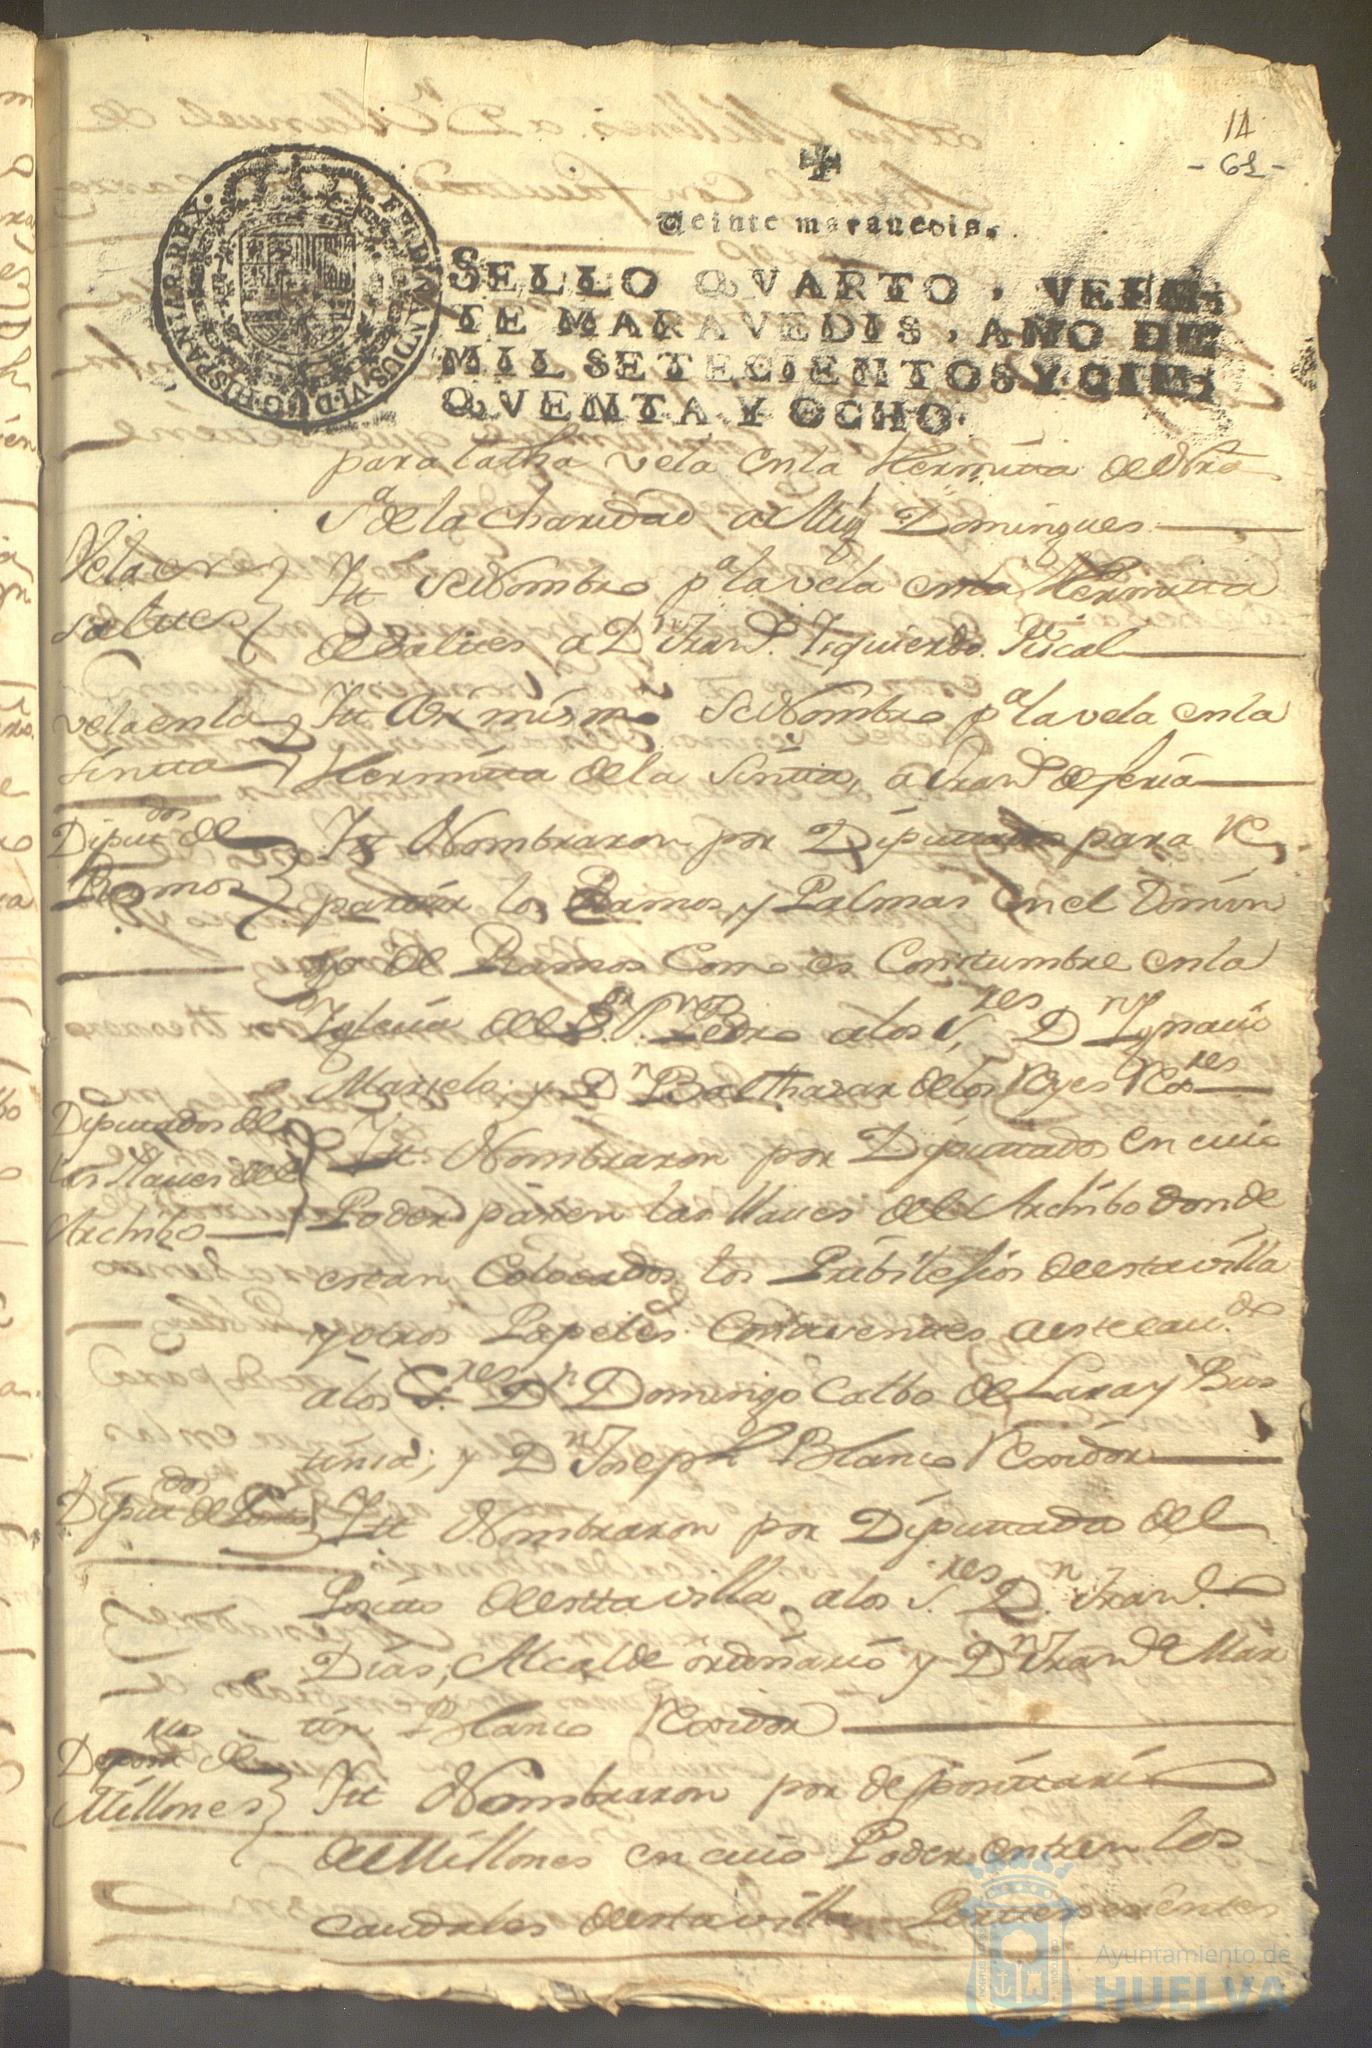 14
- 61 -
FERDINANDUS.VI.D.G.HISPANIAR.REX.
Veinte maravedis.
SELLO QVARTO, VEIN-
TE MARAVEDIS, AÑO DE
MIL SETECIENTOS Y CIN-
QVENTA Y OCHO.
para la tha vela en la Hermita de Nra
Sª de la Charidad a Mig Domingues
Vela en
salues
Itt Se Nombro pª la vela en la Hermitta
de Salues a Dn Franco Izquierdo Fiscal
vela en la
Sintta
Itt Asi mismo Se Nombro pª la vela en la
Hermitta de la Sintta, a Franco de feria
Diputdos de
Ramos
Itt Nombraron por Diputtados para Re,
partir los Ramos y Palmas en el Domin
go de Ramos Como es Constumbre en la
Iglecia del Sr Sn Pedro a los Sres Dn Ygnacio
Marselo y Dn Balthazar de los Reyes Rexres
Diputados de
las llaues del
Archibo
Itt Nombraron por Diputtados en cuio
Poder páren las llaues del Archibo donde
estan Colocados los Pribilejios de esta villa
y otros Papeles Conserventes a este caudo
a los Sres Dn Domingo Calbo de Lara y Bus
tincia; y Dn Joseph Blanco Rexidor
Diputdos de Posito
Itt Nombraron por Diputtados del
Positto de estta villa a los Sres Dn Franco
Dias, Alcalde ordinario y Dn Franco Mar
tin Blanco Rexidor
Deposrio de
Millones
Itt Nombraron por depositario
de Millones en cuio Poder entren los
caudales de esta villa Perttenesientes
Ayuntamiento de
HUELVA